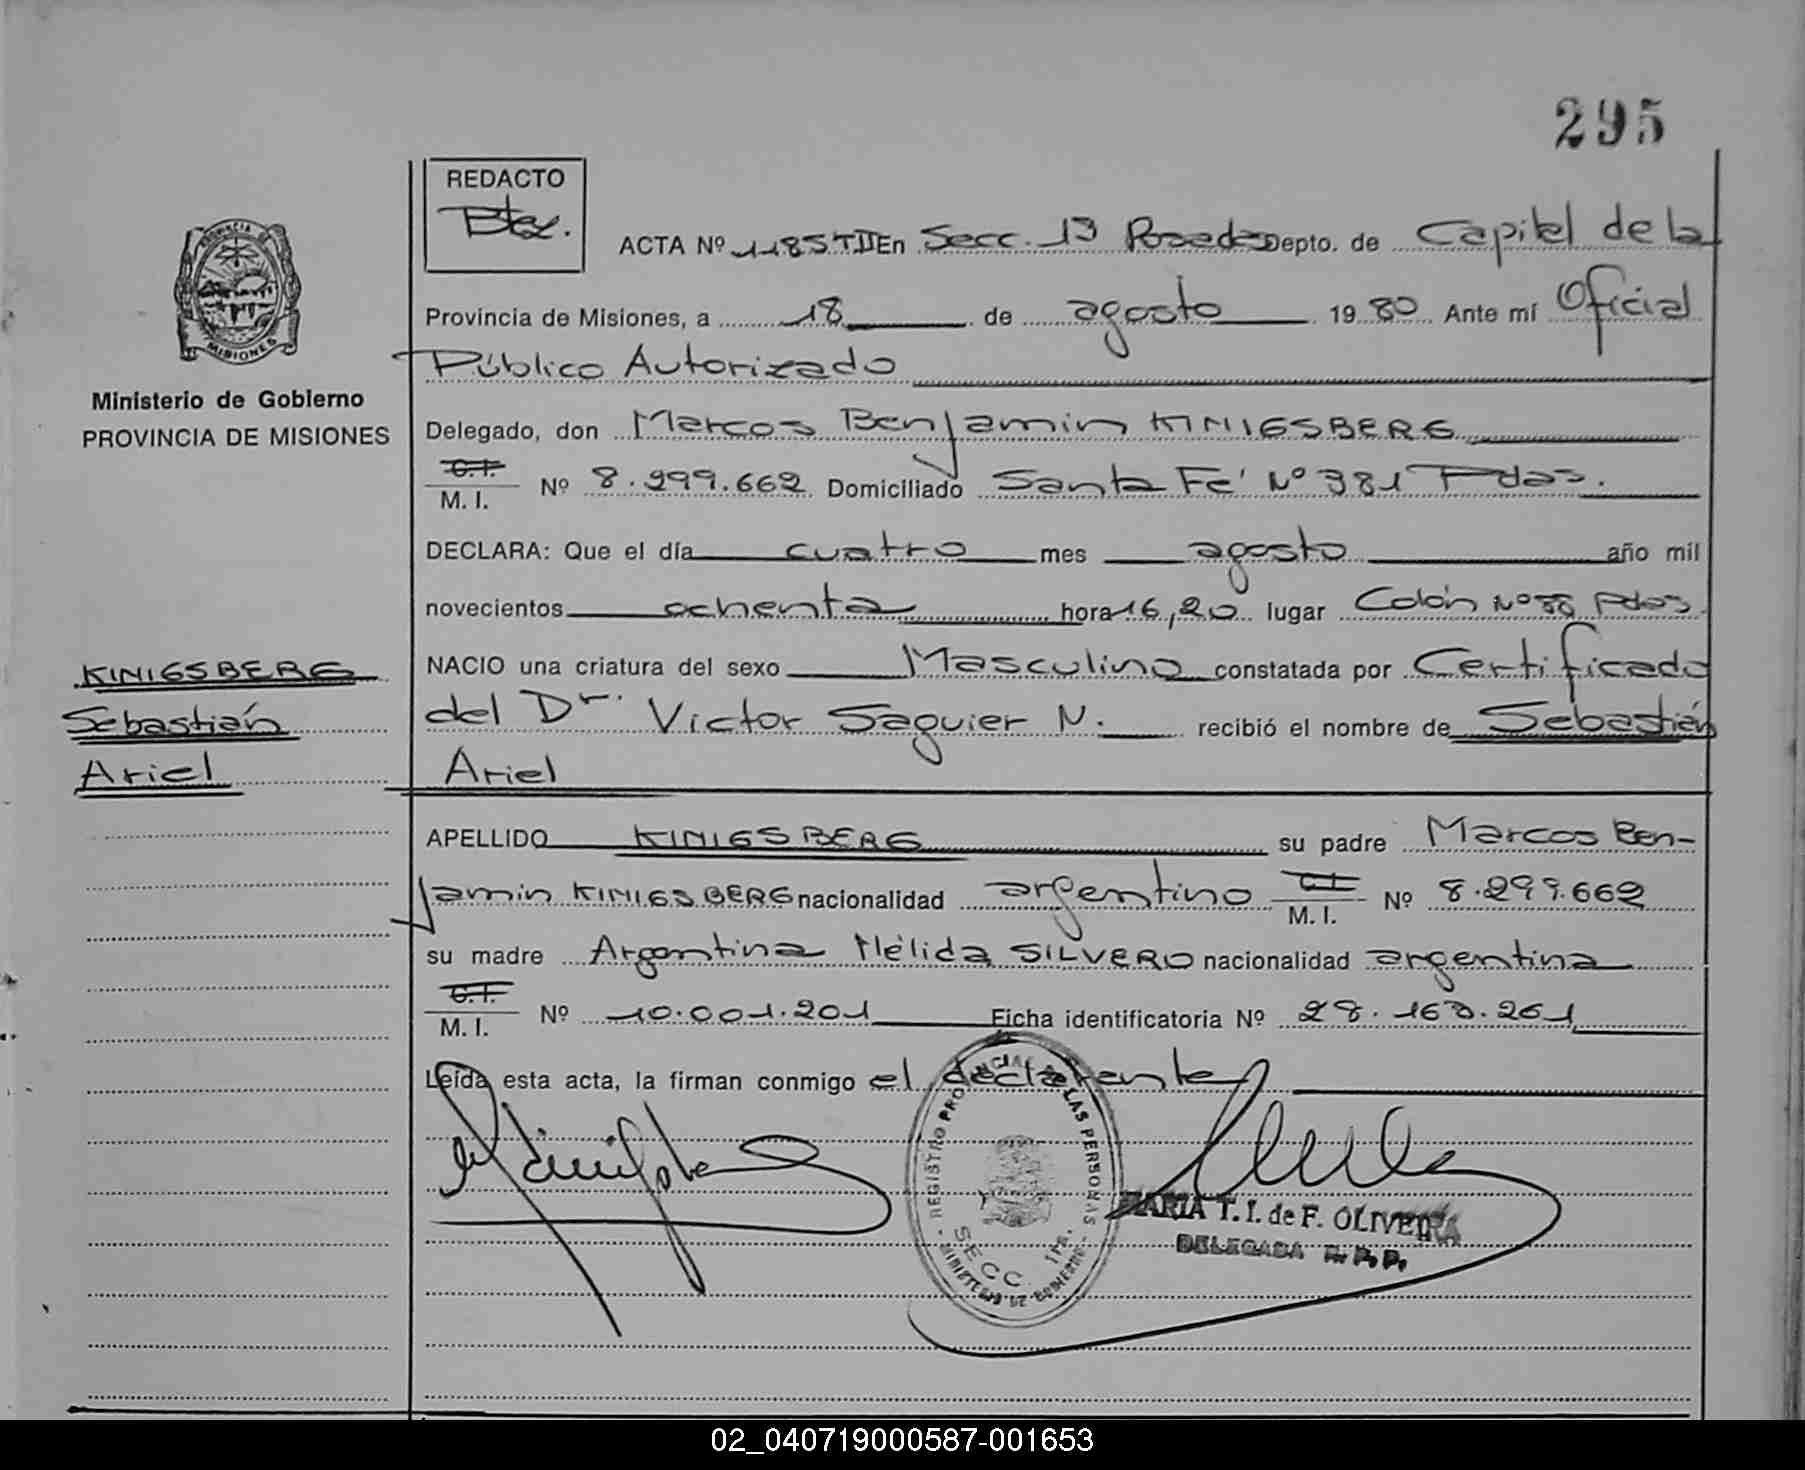 295
REDACTO
ACTA Nº 1185 T II En Secc. 1ª Posadas Depto. de Capital de la
Provincia de Misiones, a 18 de agosto 1980 Ante mí Oficial
Público Autorizado
PROVINCIA DE
MISIONES
Ministerio de Gobierno
PROVINCIA DE MISIONES
Delegado, don Marcos Benjamin KINIGSBERG
C.I.
M. I. Nº 8.299.662 Domiciliado Santa Fé Nº 381 Pdas.
DECLARA: Que el día cuatro mes agosto año mil
novecientos ochenta hora 16,20 lugar Colón Nº Pdas.
KINIGSBERG
Sebastián
Ariel
NACIO una criatura del sexo Masculino constatada por Certificado
del Dr. Victor Saguier N. recibió el nombre de Sebastián
Ariel
APELLIDO KINIGSBERG su padre Marcos Ben-
jamin KINIGSBERG nacionalidad argentino C.I. M. I. Nº 8.299.662
su madre Argentina Nélida SILVERO nacionalidad argentina
C.I.
M. I. Nº 10.001.201 Ficha identificatoria Nº 28.163.261
Leída esta acta, la firman conmigo el declarante
REGISTRO PROVINCIAL DE LAS PERSONAS
SECC. 1ra.
MINISTERIO DE GOBIERNO
MARIA T. I. de F. OLIVEIRA
DELEGADA R. P. P.
02_040719000587-001653